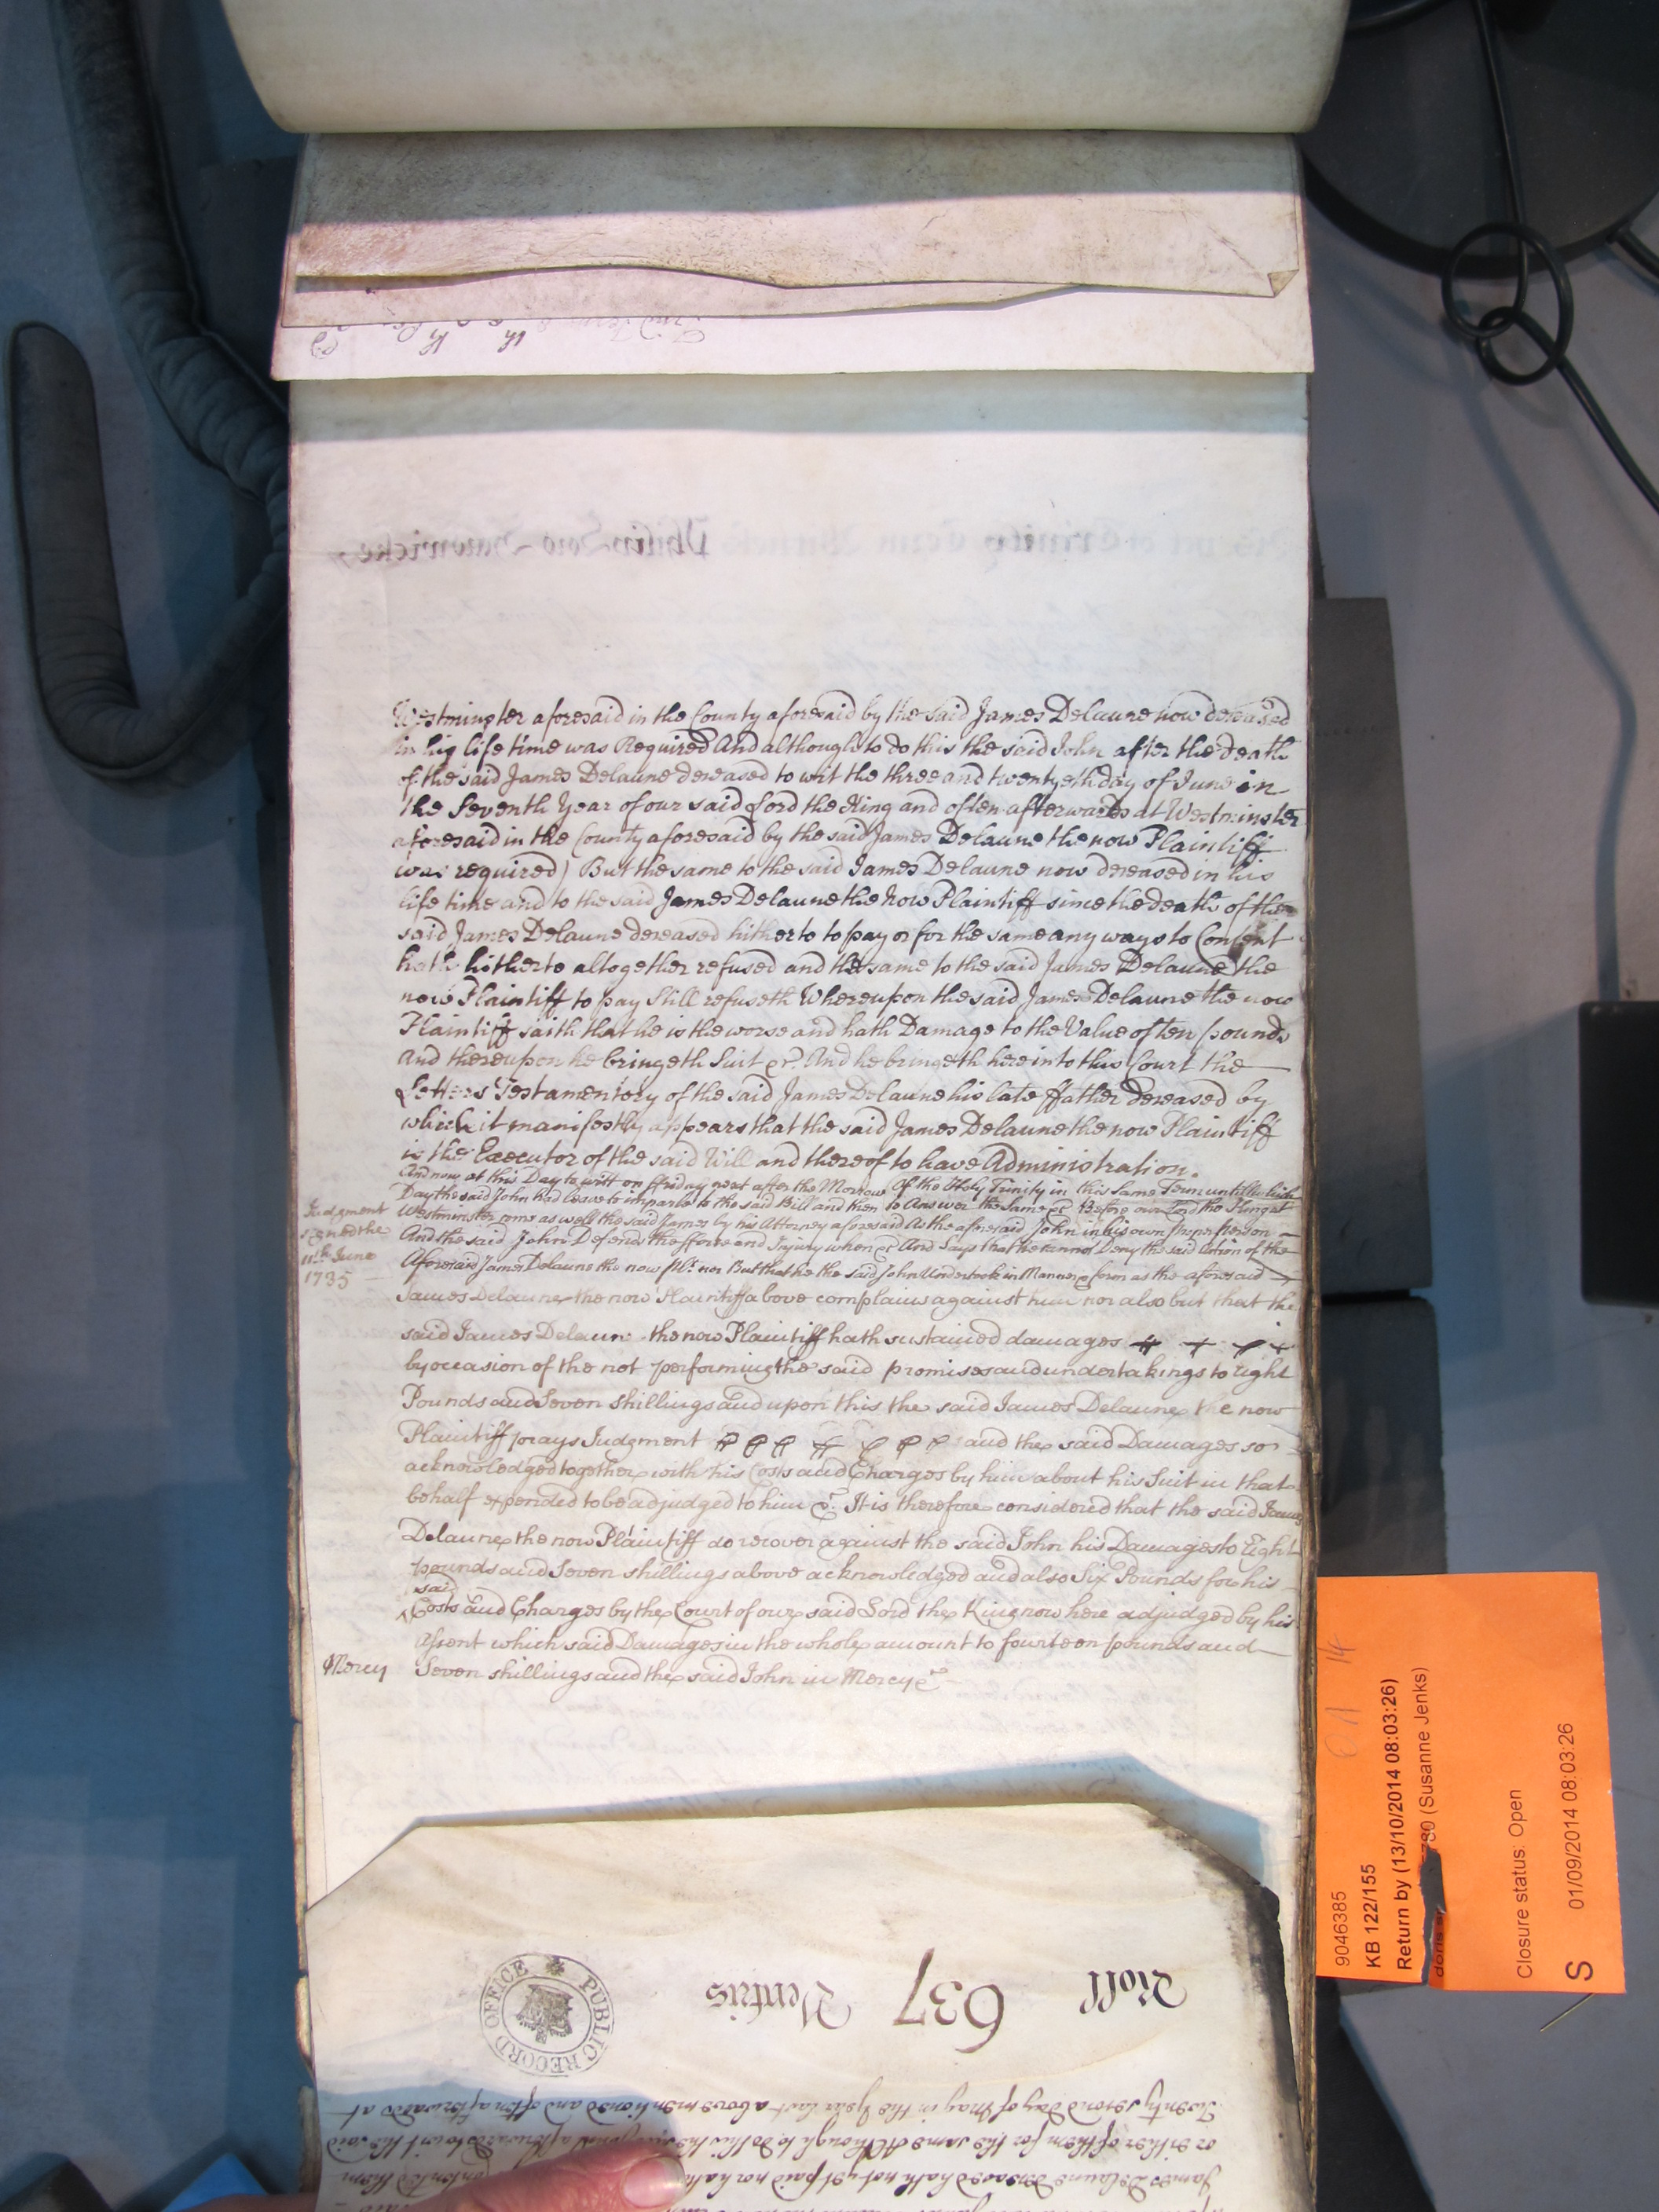 Westminster aforesaid in the County aforesaid by the said James Delaune now deceased
in his life time was Required And although to do this the said John after the death
of the said James Delaune deceased to wit the three and twentyeth day of June in
the Seventh Year of our said Lord the King and often afterwards at Westminster
aforesaid in the County aforesaid by the said James Delaune the now Plaintiff
was required) But the same to the said James Delaune now deceased in his
life time and to the said James Delaune the now Plaintiff since the death of the
said James Delaune deceased hitherto to pay or for the same any ways to Content
hath hitherto altogether refused and the same to the said James Delaune the
now Plaintiff to pay Still refuseth Whereupon the said James Delaune the now
Plaintiff saith that he is the worse and hath Damage to the Value of ten pounds
And thereupon he bringeth Suit &c. And he bringeth here into this Court the
Letters Testamentory of the said James Delaune his late ffather deceased by
which it manifestly appears that the said James Delaune the now Plaintiff
is the Executor of the said Will and thereof to have Administration.
And now at this Day to witt on ffriday next after the Morrow of the Holy Trinity in this Same Term untill which
Day the said John had leave to imparle to the said Bill and then to Answer the Same &c Before our Lord the King at
Westminster come as well the said James by his Attorney aforesaid As the aforesaid John in his own proper person
And the said John Defends the fforce and Injury when &c And Says that he cannot Deny the said Action of the
Aforesaid James Delaune the now Plt. nor But that he the said John Undertook in Manner & form as the aforesaid
James Delaune the now Plaintiff above complains against him nor also but that the
said James Delaune the now Plaintiff hath sustained damages
by occasion of the not performing the said promises and undertakings to Eight
Pounds and Seven shillings and upon this the said James Delaune the now
Plaintiff prays Judgment and the said Damages so
acknowledged together with his Costs and Charges by him about his Suit in that
behalf expended to be adjudged to him &c. It is therefore considered that the said James
Delaune the now Plaintiff do recover against the said John his Damages to Eight
pounds and Seven shillings above acknowledged and also Six Pounds for his
said
Costs and Charges by the Court of our said Lord the King now here adjudged by his
Assent which said Damages in the whole amount to fourteen pounds and
Seven shillings and the said John in Mercy &c
Judgment
signed the
11th June
1735
Mercy
Roll 637 Versus
PUBLIC RECORD OFFICE
James Delaune deceased hath not yet paid nor hath
or either of them for the same Although to do this the
Twenty second Day of May in the Year last abovementioned and often afterwards at
9046385
KB 122/155
Return by (13/10/2014 08:03:26)
(Susanne Jenks)
Closure status: Open
S 01/09/2014 08:03:26